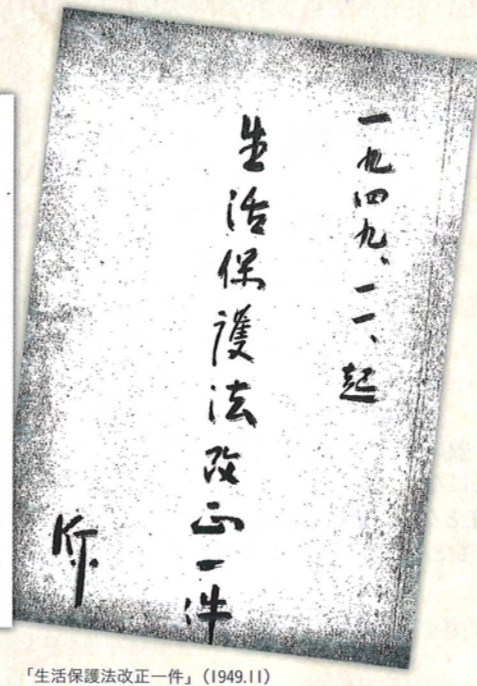 一九四九、一一、起
生活保護法改正一件
K.T.
「生活保護法改正一件」(1949.11)